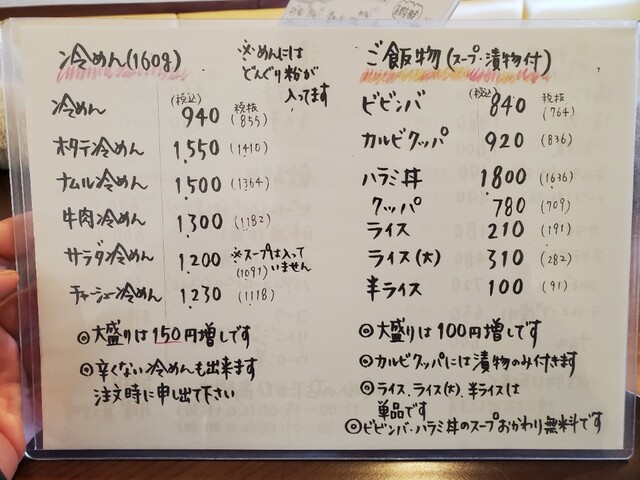 冷めん(160g)
※めんには
どんぐり粉が
入ってます
(税込) 税抜
冷めん 940 (855)
ホタテ冷めん 1,550 (1410)
ナムル冷めん 1,500 (1364)
牛肉冷めん 1,300 (1182)
サラダ冷めん 1,200 (1091) ※スープは入って
いません
チャーシュー冷めん 1,230 (1118)
◎大盛りは150円増しです
◎辛くない冷めんも出来ます
注文時に申し出て下さい
ご飯物(スープ・漬物付)
(税込) 税抜
ビビンバ 840 (764)
カルビクッパ 920 (836)
ハラミ丼 1,800 (1636)
クッパ 780 (709)
ライス 210 (191)
ライス(大) 310 (282)
半ライス 100 (91)
◎大盛りは100円増しです
◎カルビクッパには漬物のみ付きます
◎ライス、ライス(大)、半ライスは
単品です
◎ビビンバ・ハラミ丼のスープおかわり無料です